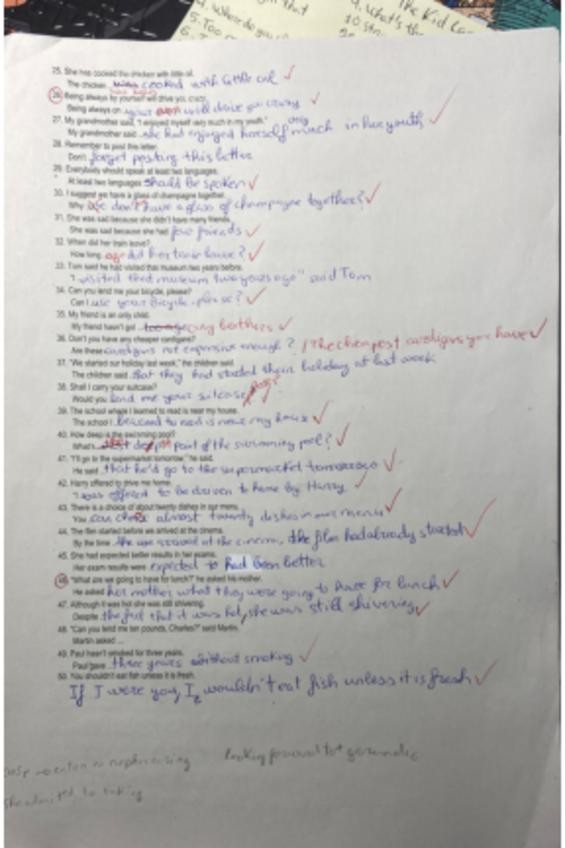 25. She has cooked the chicken with little oil.
The chicken cooked with little oil
26. Being always by yourself will drive you crazy.
Being always on your own will drive you crazy
27. My grandmother said, "I enjoyed myself very much in my youth."
My grandmother said she had enjoyed herself very much in her youth
28. Remember to post this letter.
Don't forget posting this letter
29. Everybody should speak at least two languages.
At least two languages should be spoken
30. I suggest we have a glass of champagne together.
Why don't have a glass of champagne together?
31. She was sad because she didn't have many friends.
She was sad because she had few friends
32. When did her train leave?
How long ago did her train leave?
33. Tom said he had visited that museum two years before.
"I visited that museum two years ago" said Tom
34. Can you lend me your bicycle, please?
Can I use your bicycle please?
35. My friend is an only child.
My friend hasn't got any brothers
36. Don't you have any cheaper cardigans?
Are these cardigans not expensive enough? / the cheapest cardigans you have
37. "We started our holiday last week," the children said.
The children said that they had started their holiday at last week
38. Shall I carry your suitcase?
Would you lend me your suitcase
39. The school where I learned to read is near my house.
The school I learned to read is near my house
40. How deep is the swimming pool?
What's point of the swimming pool?
41. "I'll go to the supermarket tomorrow," he said.
He said that he'd go to the supermarket tomorrow
42. Harry offered to drive me home.
I was offered to be driven to home by Harry
43. There is a choice of about twenty dishes in our menu.
You can almost twenty dishes in our menu
44. The film started before we arrived at the cinema.
By the time we arrived at the cinema, the film had already started
45. She had expected better results in her exams.
Her exam results were expected to had been better
46. "What are we going to have for lunch?" he asked his mother.
He asked her mother what they were going to have for lunch
47. Although it was hot she was still shivering.
Despite the fact that it was hot, she was still shivering
48. "Can you lend me ten pounds, Charles?" said Martin.
Martin asked ...
49. Paul hasn't smoked for three years.
Paul gave three years without smoking
50. You shouldn't eat fish unless it is fresh.
If I were you, I wouldn't eat fish unless it is fresh
looking forward to +
she admitted to taking